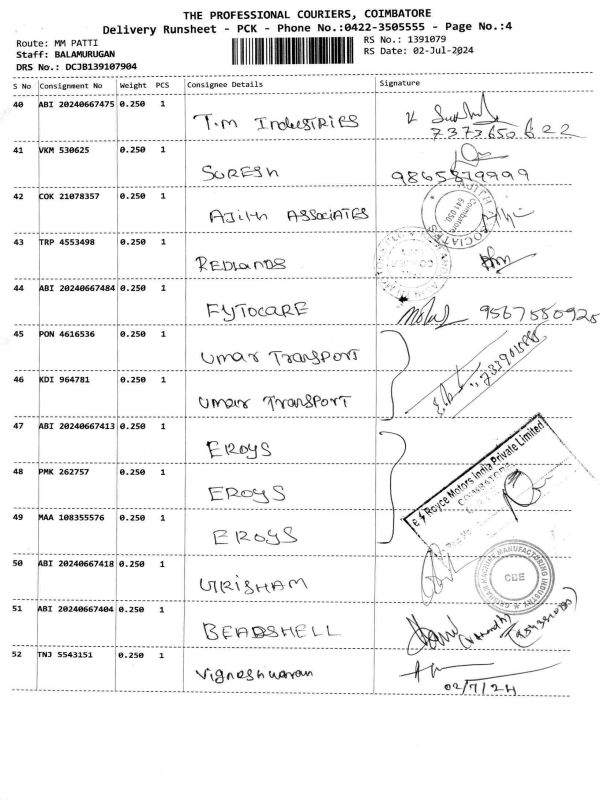 THE PROFESSIONAL COURIERS, COIMBATORE
Delivery Runsheet - PCK - Phone No.:0422-3505555 - Page No.:4
Route: MM PATTI RS No.: 1391079
Staff: BALAMURUGAN RS Date: 02-Jul-2024
DRS No.: DCJB139107904
S No Consignment No Weight PCS Consignee Details Signature
40 ABI 20240667475 0.250 1 T.M INDUSTRIES
7373650622
41 VKM 530625 0.250 1 SURESH
9865879999
42 COK 21078357 0.250 1 AJITH ASSOCIATES
AJITH ASSOCIATES
Coimbatore
641 050
43 TRP 4553498 0.250 1 REDLANDS
44 ABI 20240667484 0.250 1 FYTOCARE 9567580925
45 PON 4616536 0.250 1 Umar Transport
46 KDI 964781 0.250 1 Umar Transport
47 ABI 20240667413 0.250 1 EROYS
48 PMK 262757 0.250 1 EROYS
49 MAA 108355576 0.250 1 EROYS
Royce Motors India Private Limited
COIMBATORE
50 ABI 20240667418 0.250 1 URISHAM
MACHINE MANUFACTURING INDUSTRY
CBE
51 ABI 20240667404 0.250 1 BEADSHELL
52 TNJ 5543151 0.250 1 Vigneshwaran
02/7/24